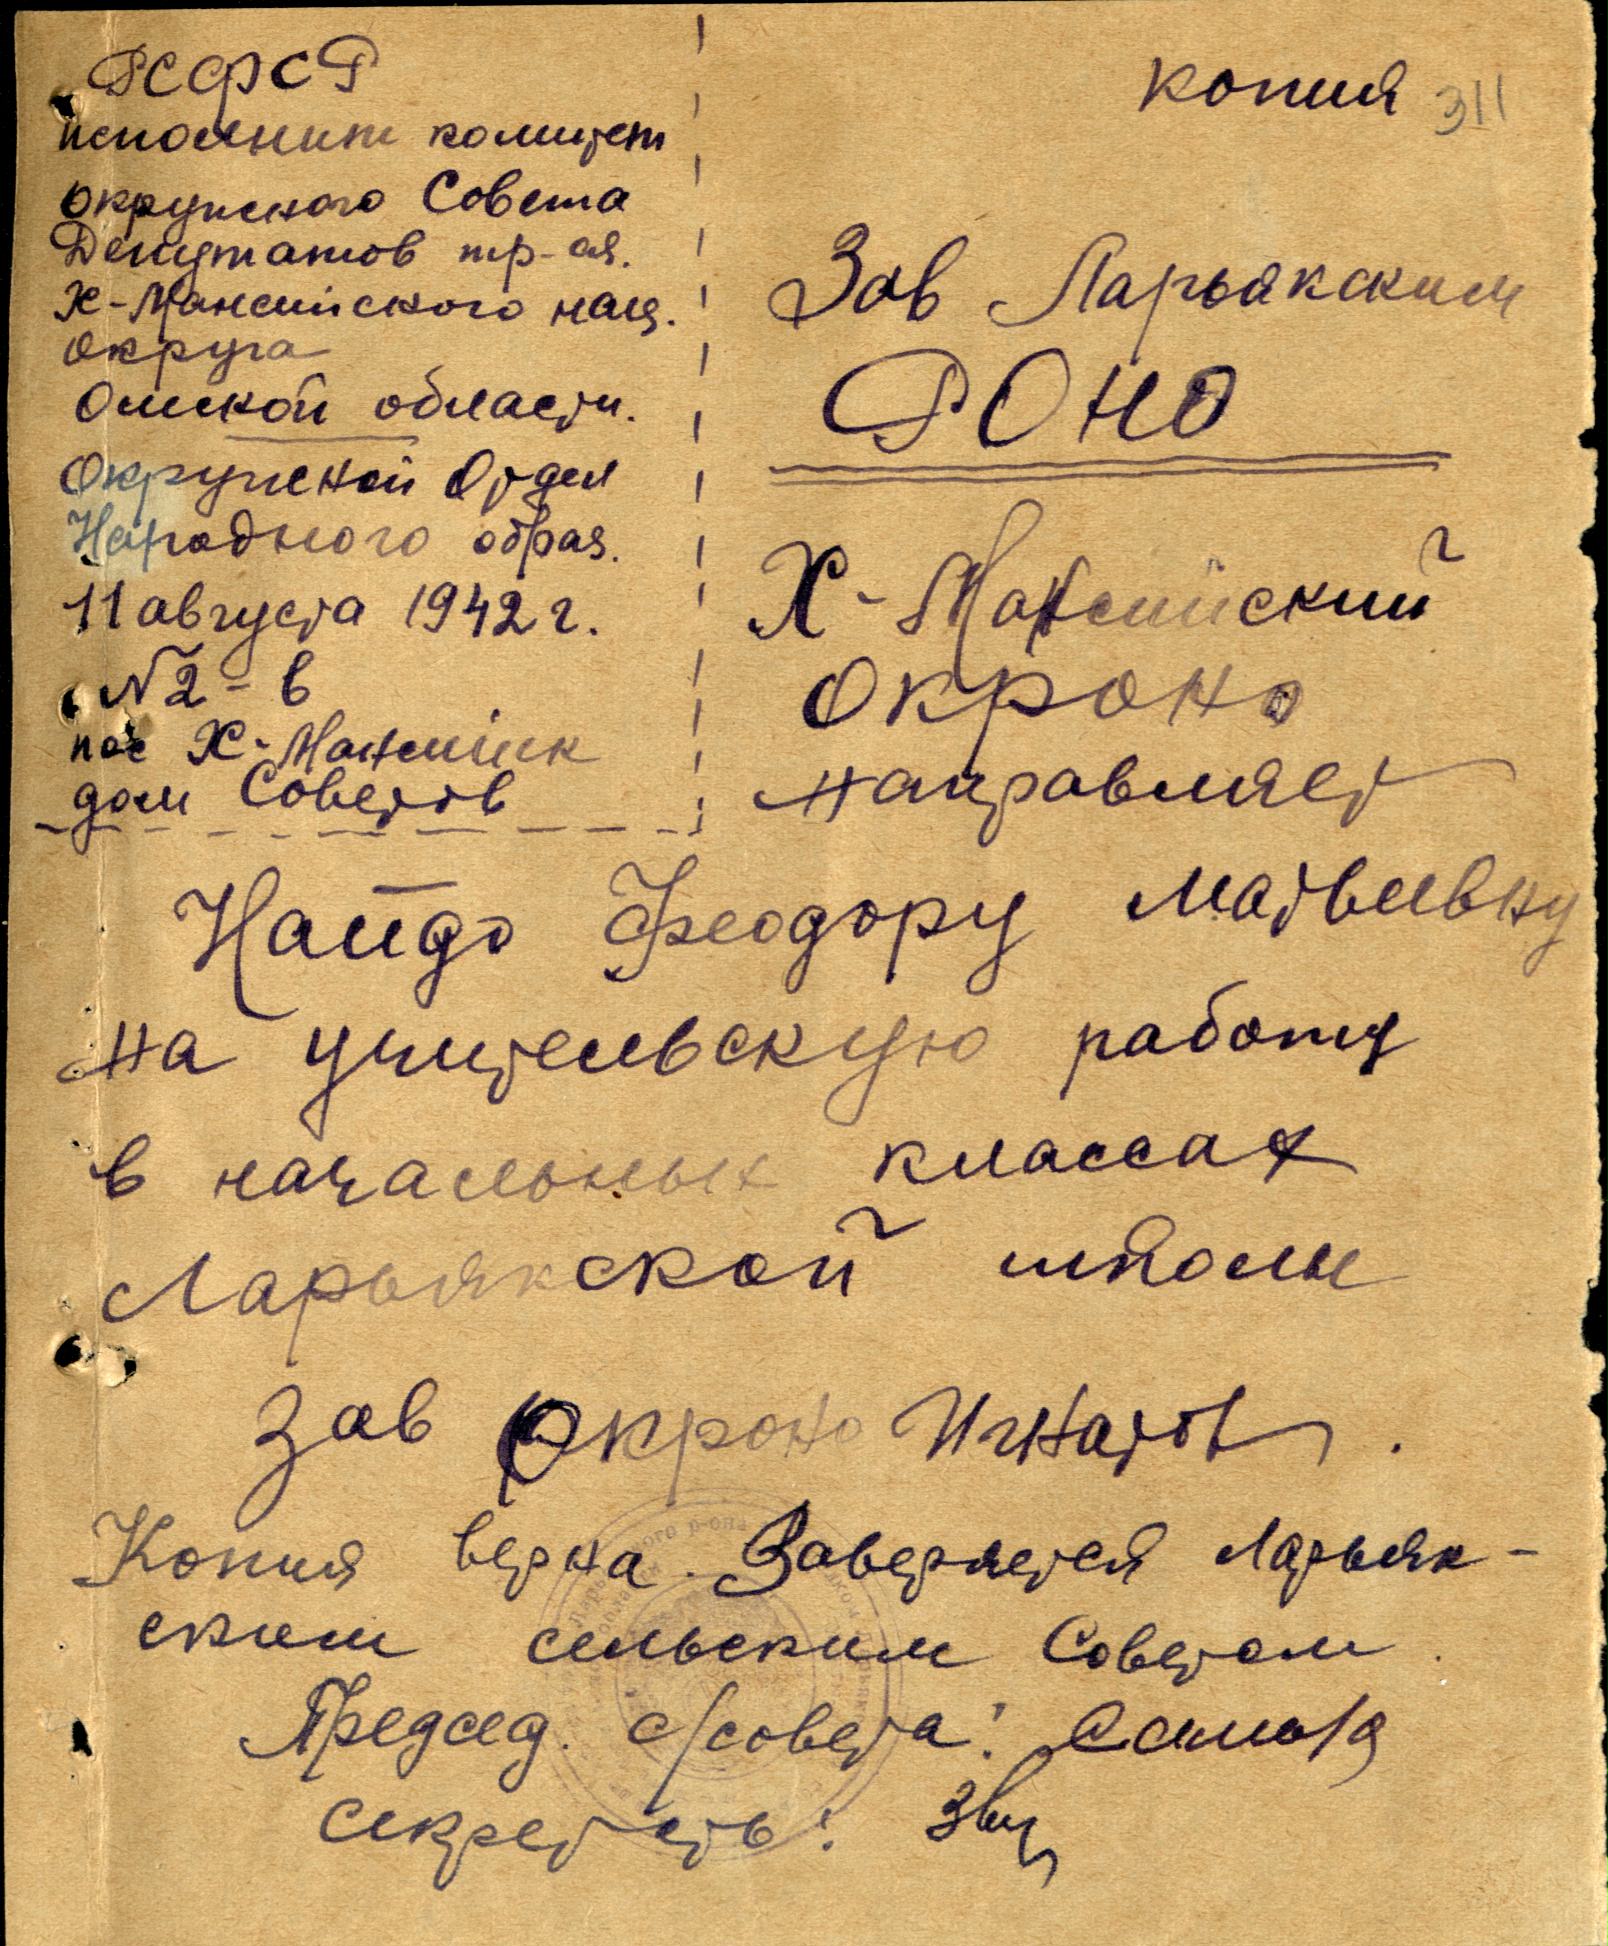 РСФСР
исполнит комитет
окружного Совета
Депутатов тр-ся.
Х-Мансийского нац.
округа
Омской области.
Окружной Отдел
Народного образ.
11 августа 1942 г.
№ 2-в
пос Х-Мансийск
дом Советов
копия 311
Зав Ларьякским
РОНО
Х-Мансийский
Окроно
направляет
Найдо Феодору Матвеевну
на учительскую работу
в начальных классах
Ларьякской школы
Зав Окроно Игнатов.
Копия верна. Заверяется Ларьяк-
ским сельским Советом.
Председ. с/совета:
секретарь: